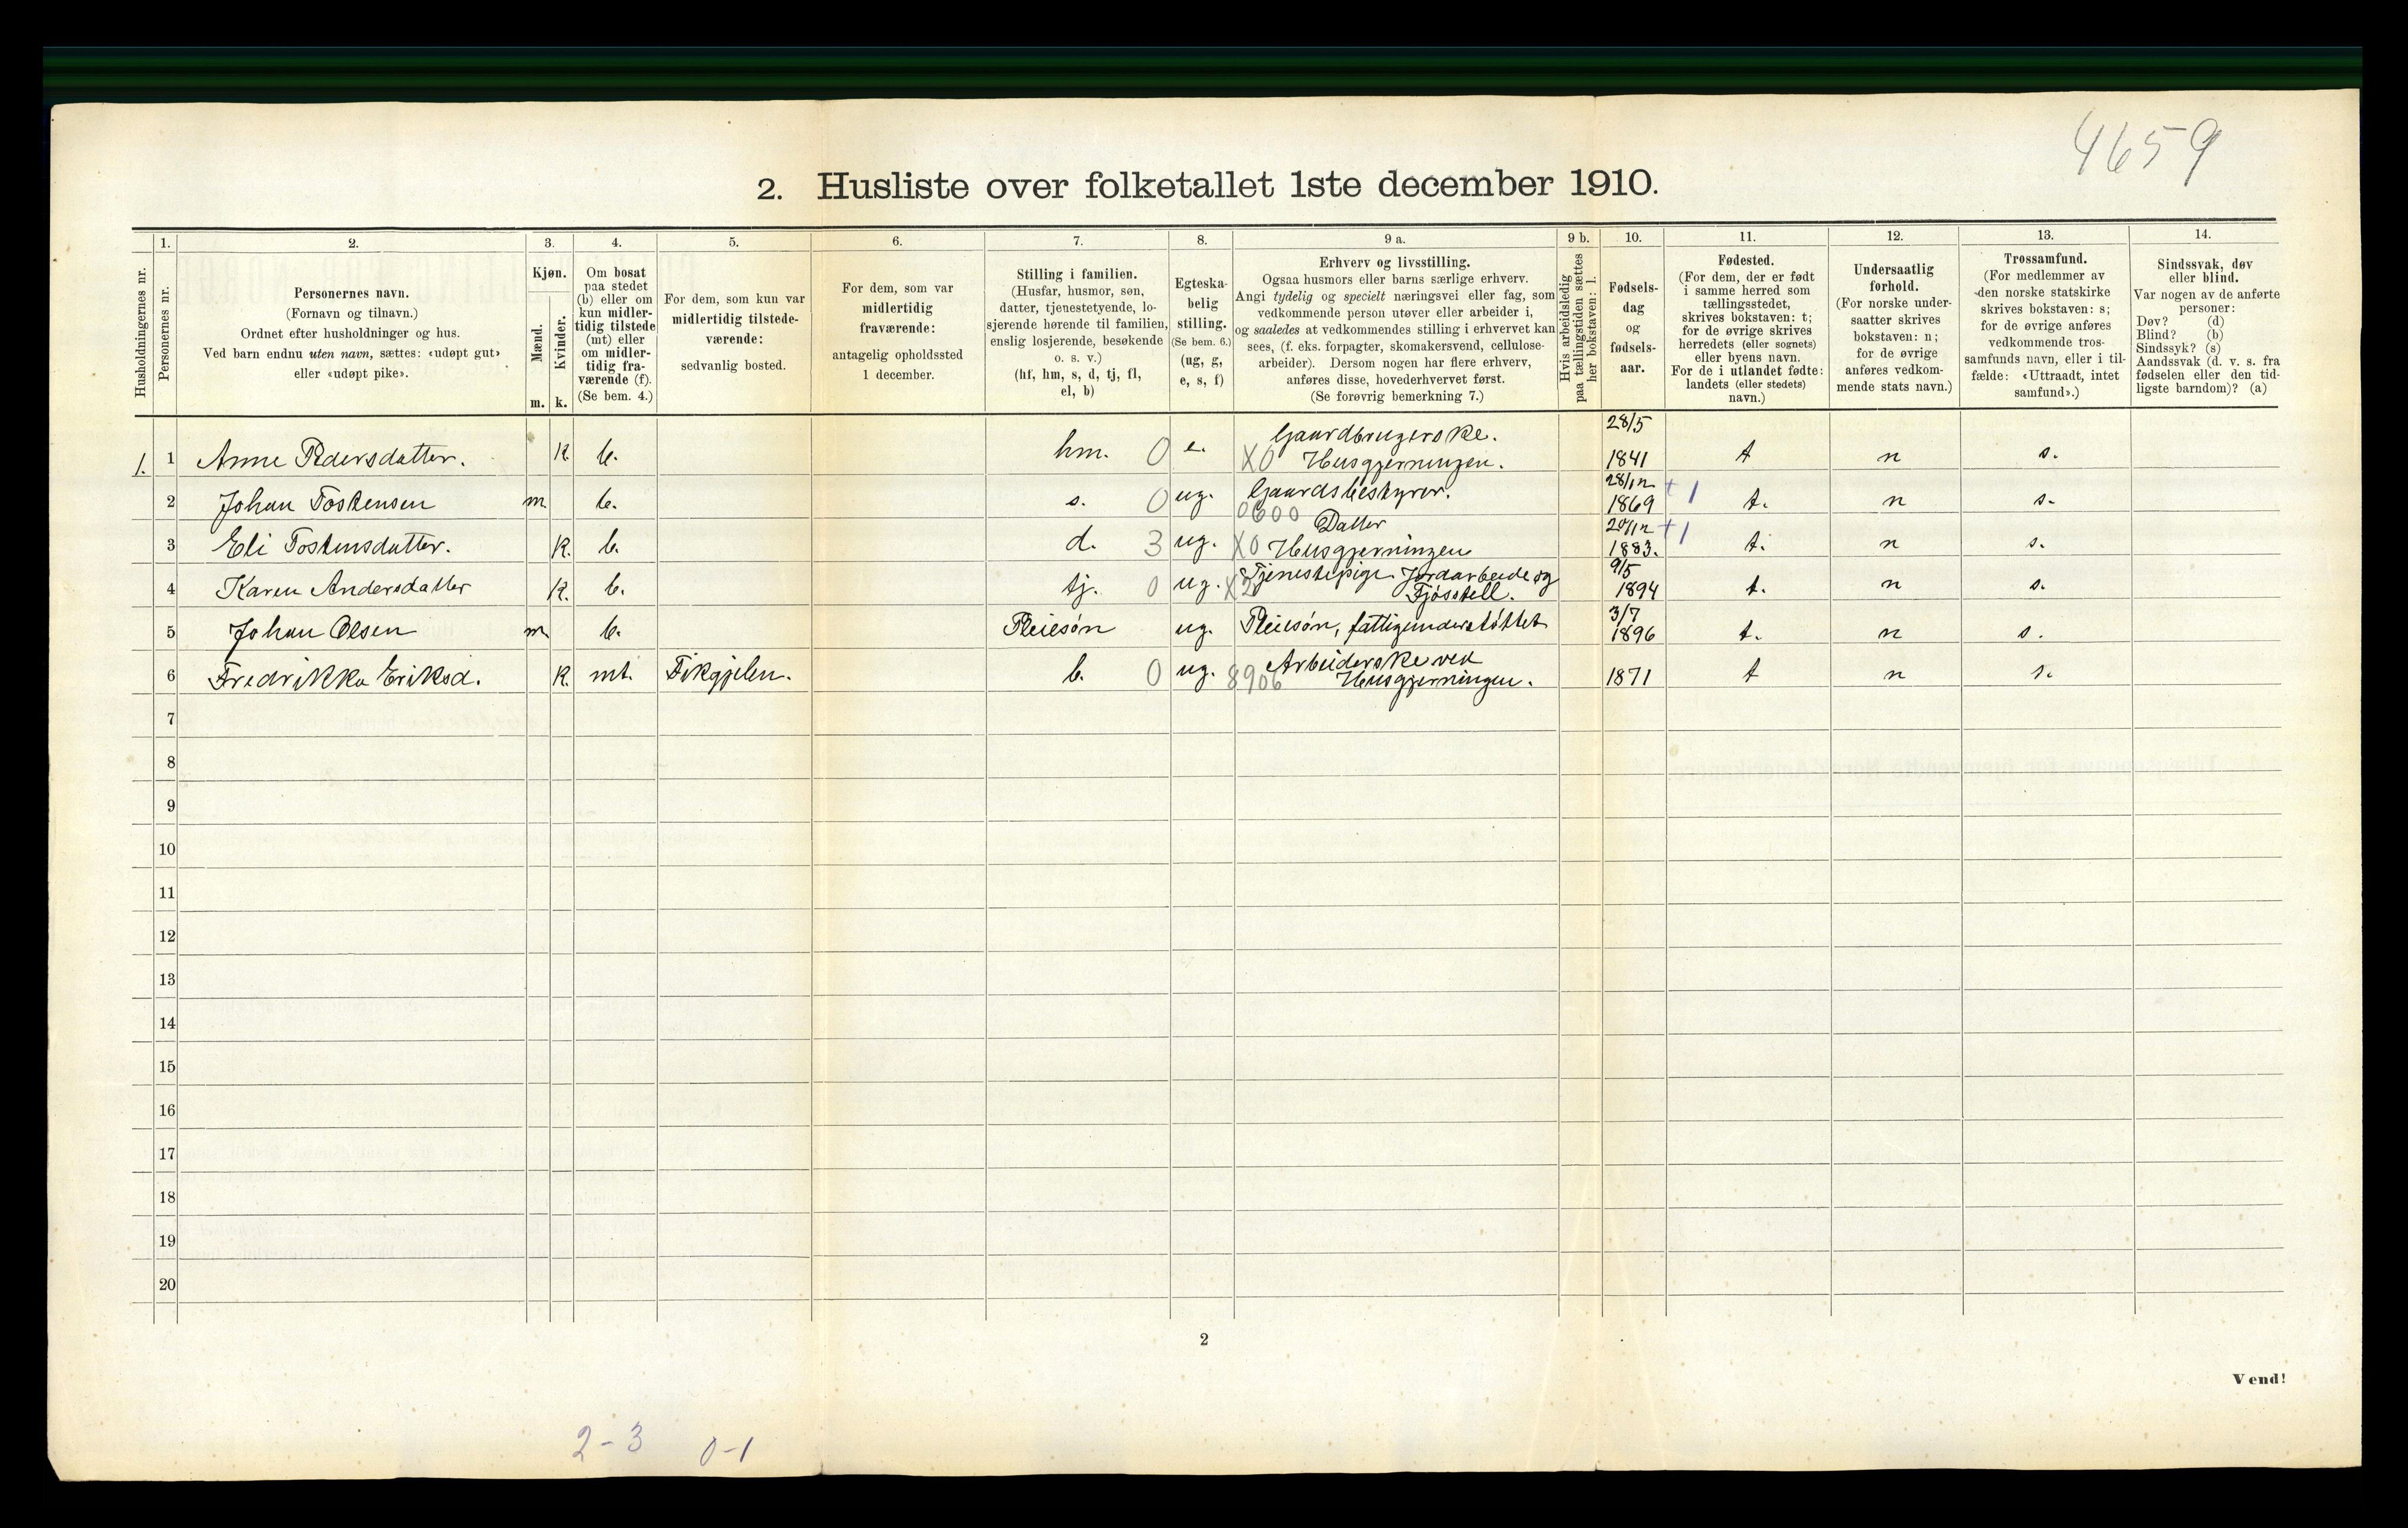 4659
2. Husliste over folketallet 1ste december 1910.
Husholdningernes nr.
1.
Personernes nr.
2.
Personernes navn.
(Fornavn og tilnavn.)
Ordnet efter husholdninger og hus.
Ved barn endnu uten navn, sættes: «udøpt gut»
eller «udøpt pike».
3.
Kjøn.
Mænd.
Kvinder.
m. k.
4.
Om bosat
paa stedet
(b) eller om
kun midler-
tidig tilstede
(mt) eller
om midler-
tidig fra-
værende (f).
(Se bem. 4.)
5.
For dem, som kun var
midlertidig tilstede-
værende:
sedvanlig bosted.
6.
For dem, som var
midlertidig
fraværende:
antagelig opholdssted
1 december.
7.
Stilling i familien.
(Husfar, husmor, søn,
datter, tjenestetyende, lo-
sjerende hørende til familien,
enslig losjerende, besøkende
o. s. v.)
(hf, hm, s, d, tj, fl,
el, b)
8.
Egteska-
belig
stilling.
(Se bem. 6.)
(ug, g,
e, s, f)
9 a.
Erhverv og livsstilling.
Ogsaa husmors eller barns særlige erhverv.
Angi tydelig og specielt næringsvei eller fag, som
vedkommende person utøver eller arbeider i,
og saaledes at vedkommendes stilling i erhvervet kan
sees, (f. eks. forpagter, skomakersvend, cellulose-
arbeider). Dersom nogen har flere erhverv,
anføres disse, hovederhvervet først.
(Se forøvrig bemerkning 7.)
9 b.
Hvis arbeidsledig
paa tællingstiden sættes
her bokstaven: l.
10.
Fødsels-
dag
og
fødsels-
aar.
11.
Fødested.
(For dem, der er født
i samme herred som
tællingsstedet,
skrives bokstaven: t;
for de øvrige skrives
herredets (eller sognets)
eller byens navn.
For de i utlandet fødte:
landets (eller stedets)
navn.)
12.
Undersaatlig
forhold.
(For norske under-
saatter skrives
bokstaven: n;
for de øvrige
anføres vedkom-
mende stats navn.)
13.
Trossamfund.
(For medlemmer av
den norske statskirke
skrives bokstaven: s;
for de øvrige anføres
vedkommende tros-
samfunds navn, eller i til-
fælde: «Uttraadt, intet
samfund».)
14.
Sindssvak, døv
eller blind.
Var nogen av de anførte
personer:
Døv? (d)
Blind? (b)
Sindssyk? (s)
Aandssvak (d. v. s. fra
fødselen eller den tid-
ligste barndom)? (a)
1. 1 Anne Pedersdatter. K. b. hm. 0 e. X0 Gaardbrugerske. Husgjerningen. 28/5 1841 t n s.
2 Johan Tostensen m. b. s. 0 ug. Gaardsbestyrer. 0600 28/12 1869 +1 t. n s.
3 Eli Tostensdatter. K. b. d. 3 ug. X0 Datter Husgjerningen 20/12 1883. +1 t. n s.
4 Karen Andersdatter K. b. tj. 0 ug. X2 Tjenestepige Jordarbeide og Fjøsstell. 9/5 1894 t. n s.
5 Johan Olsen m. b. Pleiesøn ug. Pleiesøn, fattigunderstøttet 3/7 1896 t. n s.
6 Fredrikke Eriksd. K. mt. Fikgjelen. b. 0 ug. 8906 Arbeiderske ved Husgjerningen. 1871 t n s.
7
8
9
10
11
12
13
14
15
16
17
18
19
20
2
Vend!
2-3 0-1